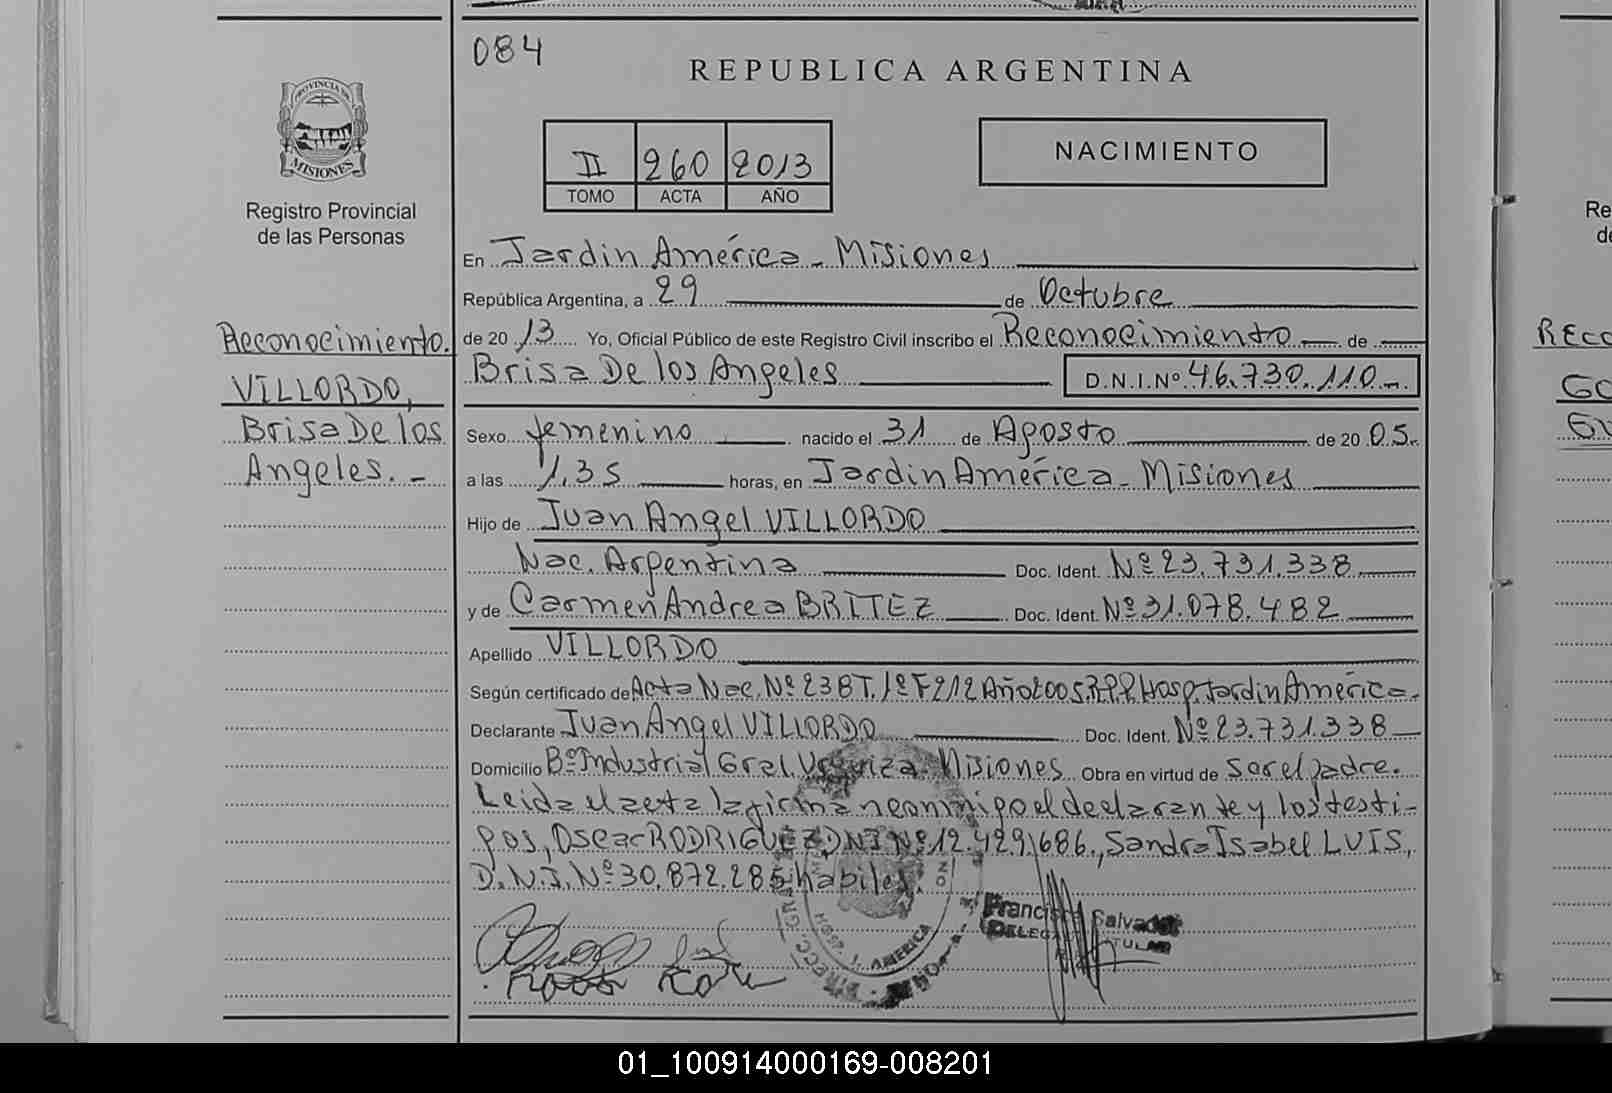 084
REPUBLICA ARGENTINA
PROVINCIA DE
MISIONES
Registro Provincial
de las Personas
II 260 2013
TOMO ACTA AÑO
NACIMIENTO
Reconocimiento.
VILLORDO,
Brisa De los
Angeles. -
En Jardin América - Misiones
República Argentina, a 29 de Octubre
de 20 13 Yo, Oficial Público de este Registro Civil inscribo el Reconocimiento de
Brisa De los Angeles D.N.I.Nº 46.730.110
Sexo femenino nacido el 31 de Agosto de 20 05.
a las 1,35 horas, en Jardin América - Misiones
Hijo de Juan Angel VILLORDO
Nac. Argentina Doc. Ident. Nº 23.731.338
y de Carmen Andrea BRITEZ Doc. Ident. Nº 31.078.482
Apellido VILLORDO
Según certificado de Acta Nac. Nº 238 T. 1º F 212 Año 2005 R.P.P. Hosp. Jardin América.
Declarante Juan Angel VILLORDO Doc. Ident. Nº 23.731.338
Domicilio Bº Industrial Gral. Urquiza - Misiones Obra en virtud de ser el padre.
Leida el acta la firman conmigo el declarante y los testi-
gos, Oscar RODRIGUEZ D.N.I. Nº 12.429.686., Sandra Isabel LUIS,
D.N.I. Nº 30.872.285 habiles.
Salvador
J. AMERICA
RECO
GO
Re
de
01_100914000169-008201